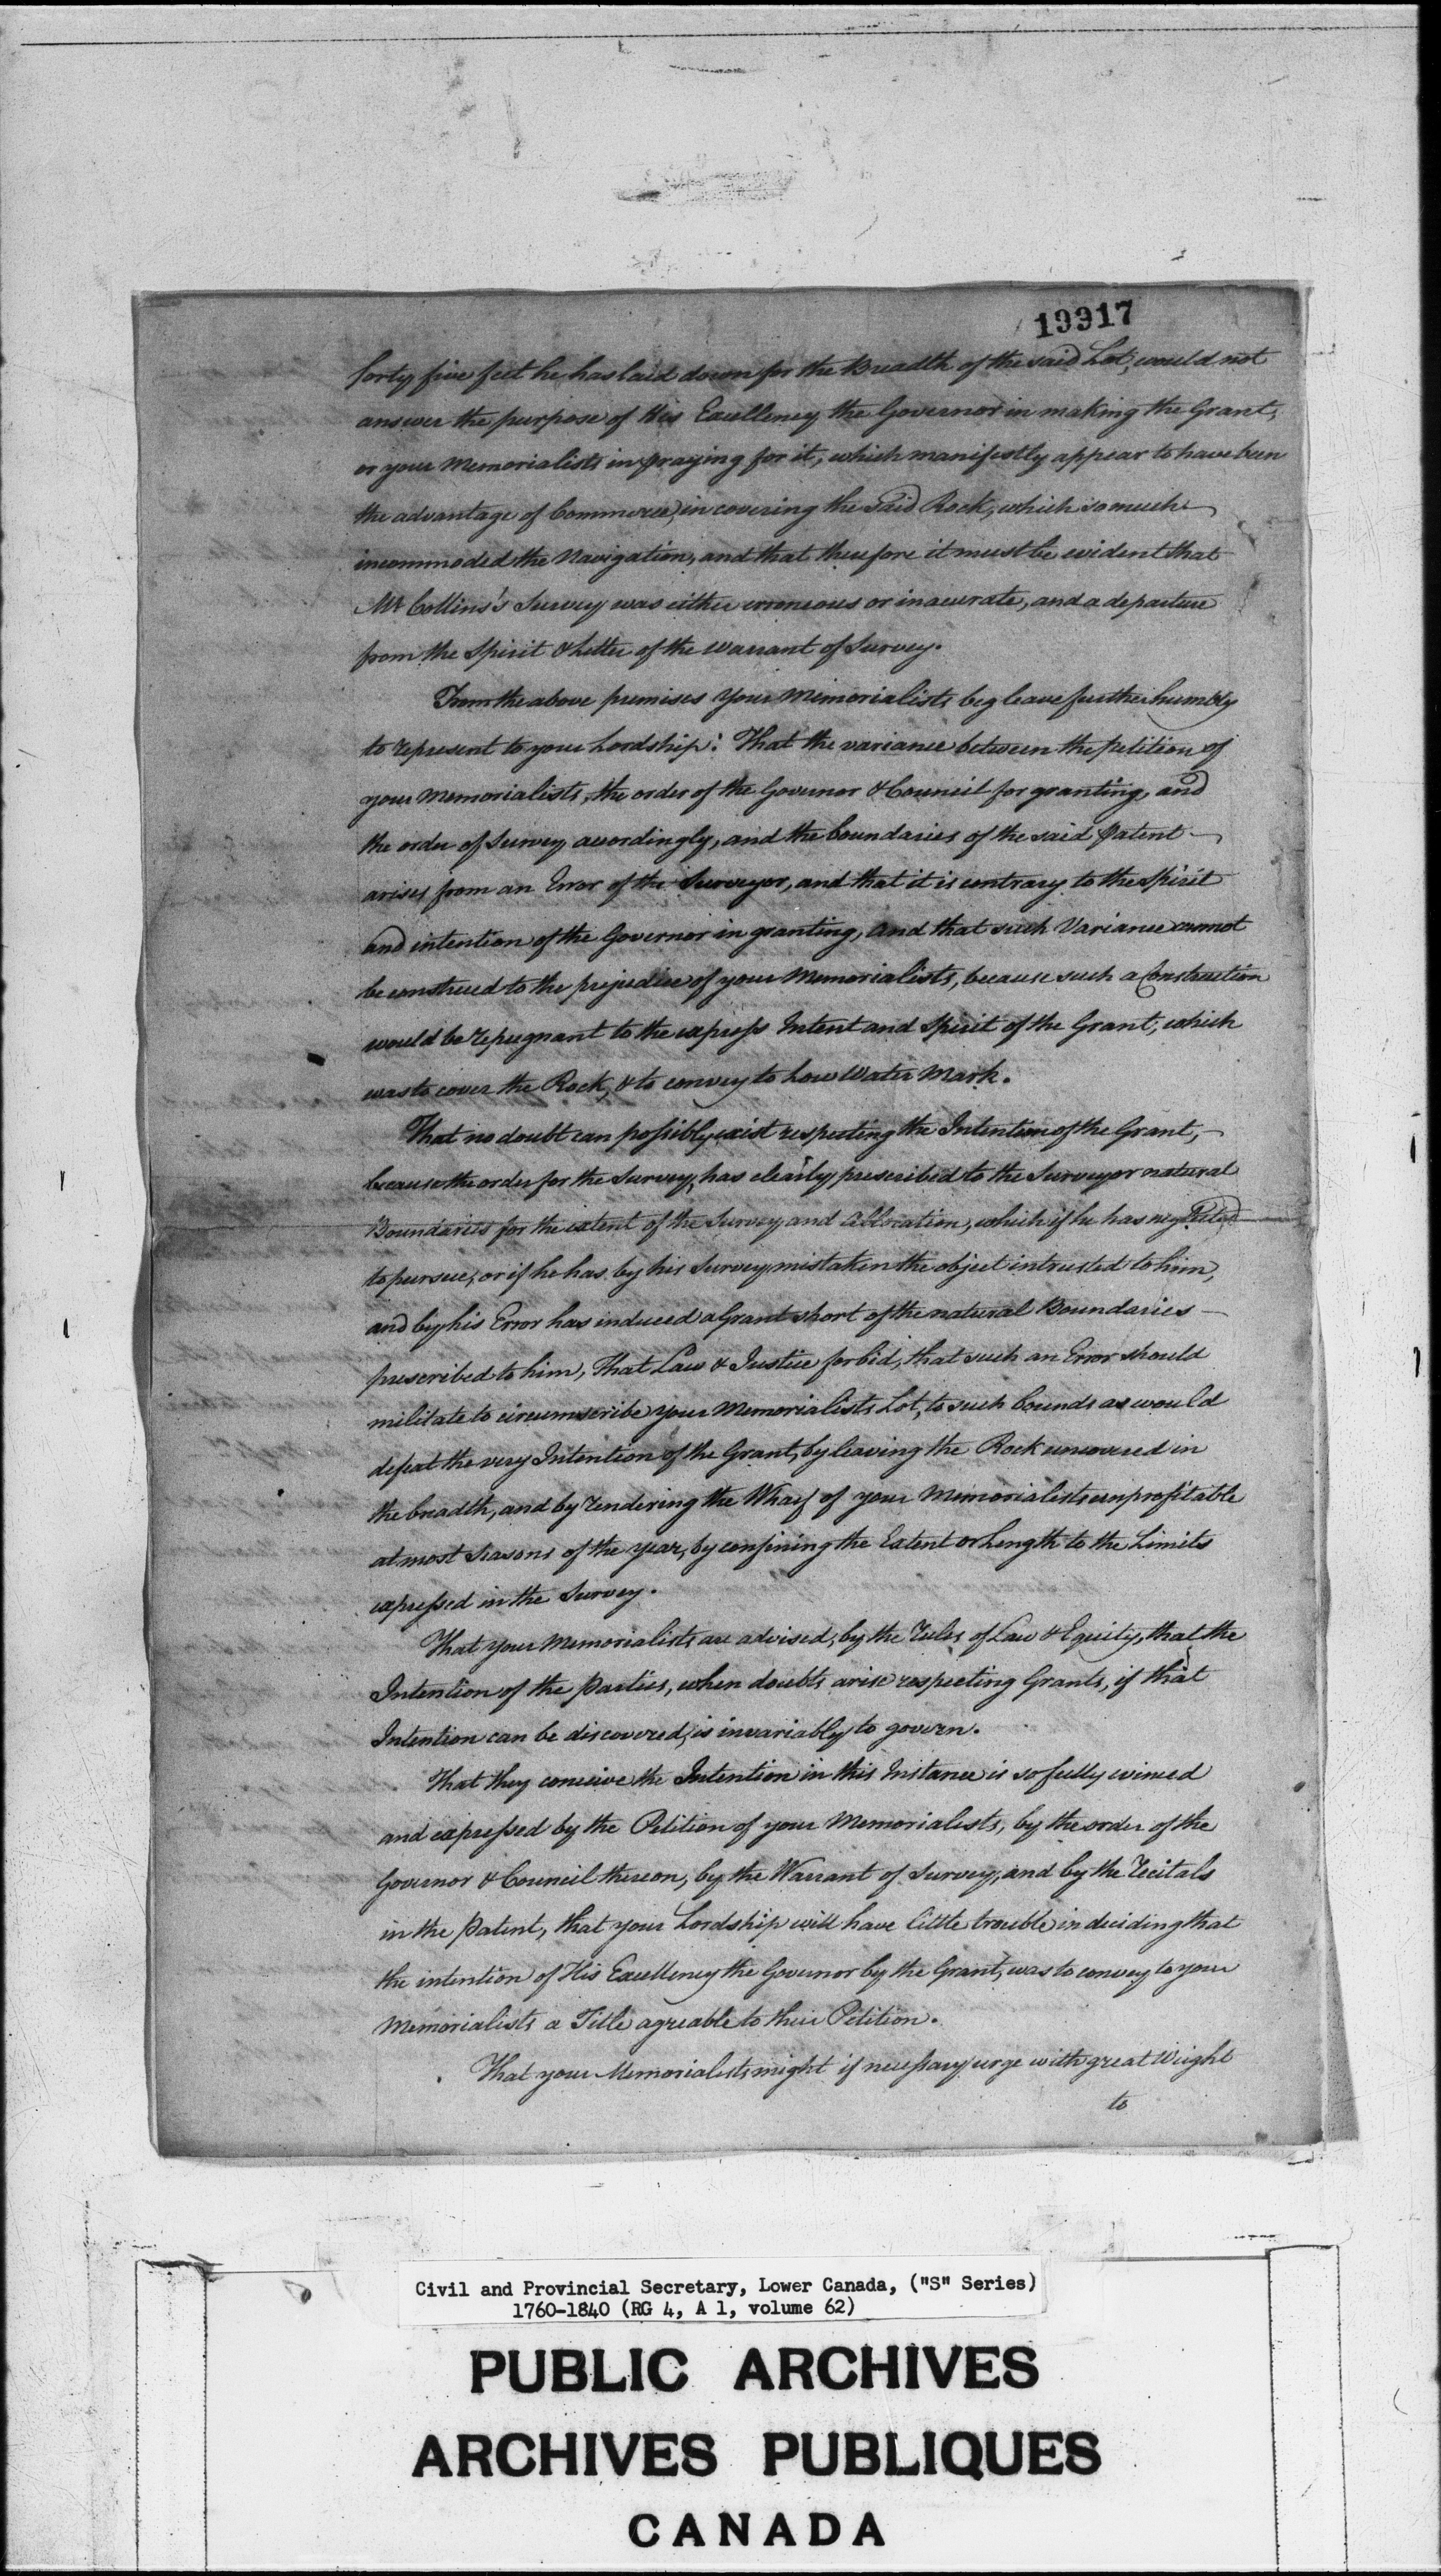 19917
forty five feet he has laid down for the Breadth of the said Lot, would not
answer the purpose of His Excellency the Governor in making the Grant,
or your Memorialists in praying for it, which manifestly appear to have been
the advantage of Commerce, in covering the said Rock, which so much
incommoded the Navigation, and that therefore it must be evident that
Mr Collins's Survey was either erroneous or inacurate, and a departure
from the Spirit & Letter of the Warrant of Survey.
From the above premises your Memorialists beg leave further humbly
to represent to your Lordship: That the variance between the petition of
your Memorialists, the order of the Governor & Council for granting, and
the order of Survey accordingly, and the boundaries of the said Patent
arises from an Error of the Surveyor, and that it is contrary to the Spirit
and intention of the Governor in granting, and that such Variance cannot
be construed to the prejudice of your Memorialists, because such a Construction
would be repugnant to the express Intent and Spirit of the Grant, which
was to cover the Rock, & to convey to Low Water Mark.
That no doubt can possibly exist respecting the Intention of the Grant,
because the order for the Survey, has clearly prescribed to the Surveyor natural
Boundaries for the extent of the Survey and Allocation, which if he has neglected
to pursue, or if he has by his Survey mistaken the object intrusted to him,
and by his Error has induced a Grant short of the natural Boundaries
prescribed to him, That Law & Justice forbid, that such an Error should
militate to circumscribe your Memorialists Lot, to such bounds as would
defeat the very Intention of the Grant, by leaving the Rock uncovered in
the breadth, and by rendering the Wharf of your Memorialists unprofitable
at most Seasons of the year, by confining the Extent or Length to the Limits
expressed in the Survey.
That your Memorialists are advised, by the Rules of Law & Equity, that the
Intention of the Parties, when doubts arise respecting Grants, if that
Intention can be discovered, is invariably to govern.
That they conceive the Intention in this Instance is so fully evinced
and expressed by the Petition of your Memorialists, by the order of the
Governor & Council thereon, by the Warrant of Survey, and by the Recitals
in the Patent, that your Lordship will have little trouble in deciding that
the intention of His Excellency the Governor by the Grant, was to convey to your
Memorialists a Title agreable to their Petition.
That your Memorialists might if necessary urge with great Weight
to
Civil and Provincial Secretary, Lower Canada, ("S" Series)
1760-1840 (RG 4, A 1, volume 62)
PUBLIC ARCHIVES
ARCHIVES PUBLIQUES
CANADA